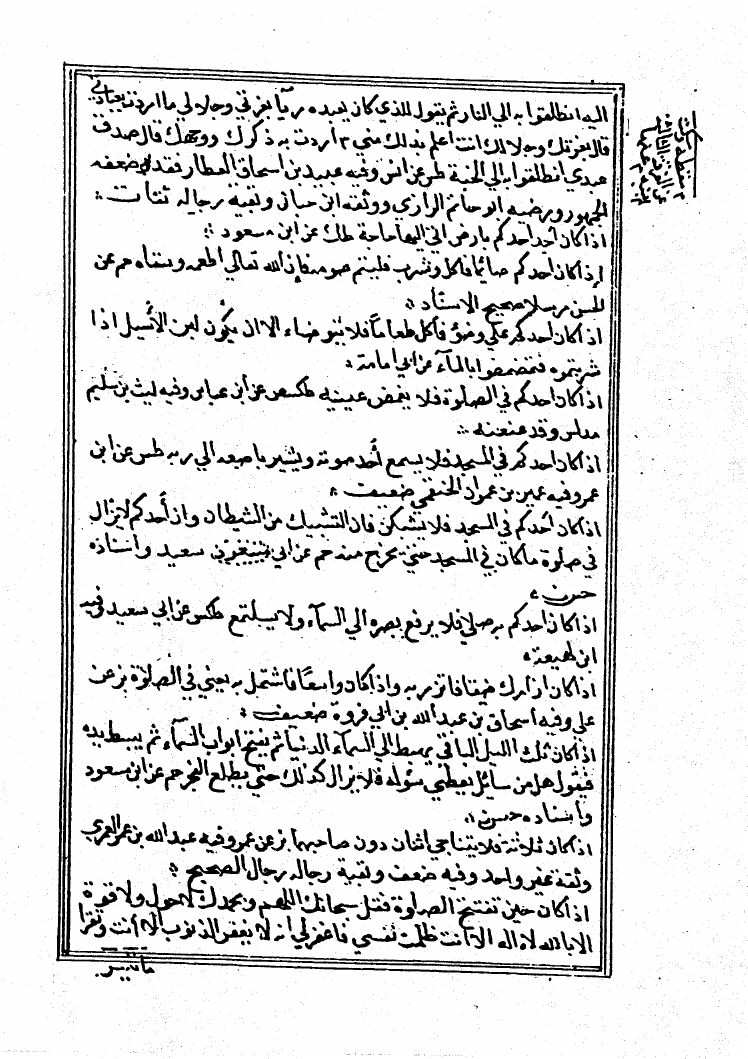 اليه انطلقوا به الي النار ثم يقول للذي كان يعبده ريآ بعزتي وجلالي ما اردت بعبادتي
قال بعزتك وجلالك انت اعلم بذلك مني اردت به ذكرك ووجهك قال صدق
عبدي انطلقوا به الي الجنة طس عن انس وفيه عبيد بن اسحاق العطار فقد ضعفه
الجمهور ورضيه ابو حاتم الرازي ووثقه ابن حبان وبقية رجاله ثقات
اذا كان اجل احدكم بارض اتي اليها حاجة طك عن ابن مسعود
إذا كان احدكم صائما فاكل وشرب فليتم صومه فإن الله تعالي اطعمه وسقاه حم عن
الحسن مرسلا صحيح الاسناد
اذا كان احدكم علي وضؤ فأكل طعاماً فلا يتوضاء الا ان يكون لبن الأبل اذا
شربتموه فتمضمضوا بالمآء عن ابي امامة
اذا كان احدكم في الصلوة فلا يغمض عينيه طكسص عن ابن عباس وفيه ليث بن سليم
مدلس وقد عنعنه
اذا كان احدكم في المسجد فلا يسمع أحد صوته ويشير باصبعه الي ربه طس عن ابن
عمر وفيه عمير بن عمران الحنفي ضعيف
اذا كان أحدكم في المسجد فلا يشبكن فان التشبيك من الشيطان وان أحدكم لا يزال
في صلوة ما كان في المسجد حتي يخرج منه حم عن ابي سعيد واسناده
حسن
اذا كان احدكم يصلي فلا يرفع بصره الي السمآء ولا يلتمع طكس عن ابي سعيد وفيه
ابن لهيعة
اذا كان ازارك ضيقا فاتزر به واذا كان واسعًا فاشتمل به يعني في الصلوة بز عن
علي وفيه اسحاق بن عبد الله بن ابي فروة ضعيف
اذا كان ثلث الليل الباقي يهبط الي السمآء الدنيا ثم يفتح ابواب السمآء ثم يبسط يده
فيقول هل من سائل يعطي سؤله فلا يزال كذلك حتي يطلع الفجر حم عن ابن مسعود
واسناده حسن
اذا كان ثلاثة فلا يتناجي اثنان دون صاحبهما بز عن عمر وفيه عبد الله بن عمر العمري
وثقه غير واحد وفيه ضعف وبقية رجاله رجال الصحيح
اذا كان حين تفتتح الصلوة فقل سبحانك اللهم وبحمدك لا حول ولا قوة
الا بالله لا اله الا انت ظلمت نفسي فاغفر لي انه لا يغفر الذنوب الا أنت وتقرا
ما تيسر